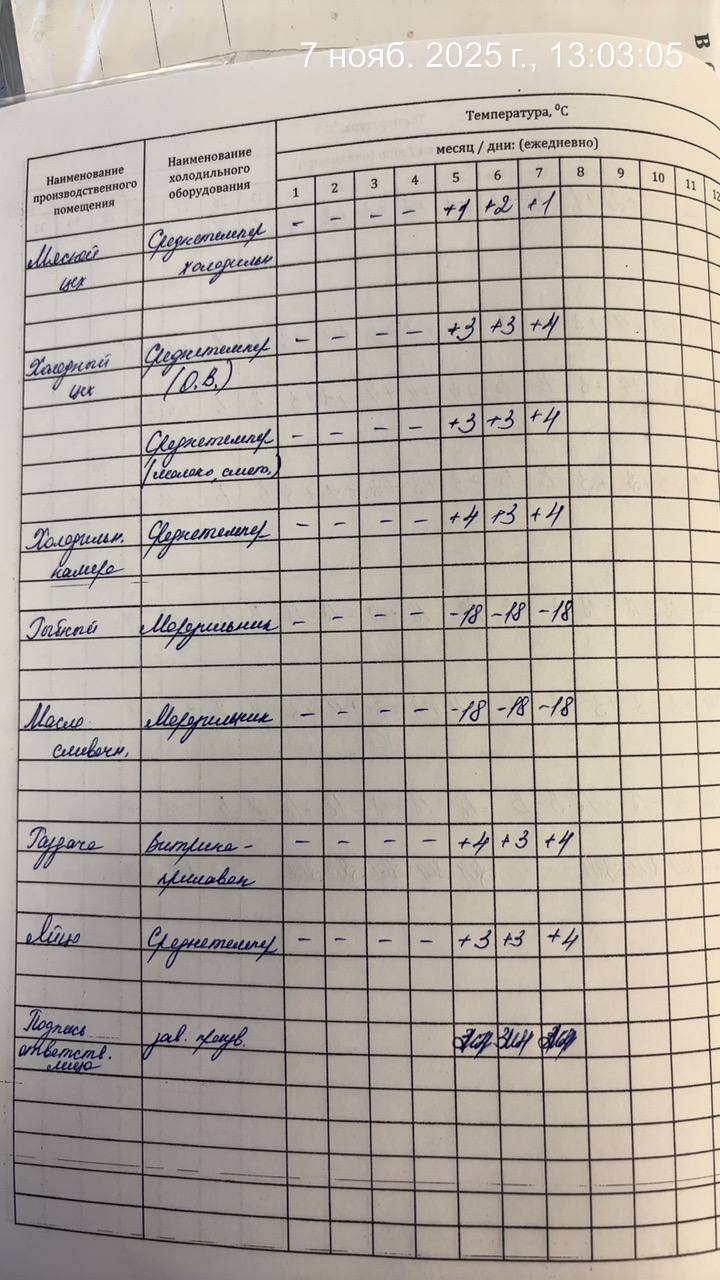 7 нояб. 2025 г., 13:03:05
Температура, ⁰С
Наименование
производственного
помещения
Наименование
холодильного
оборудования
месяц / дни: (ежедневно)
1 2 3 4 5 6 7 8 9 10 11 12
Мясной
цех
Среднетемпер
холодильн
- - - - +1 +2 +1
Холодный
цех
Среднетемпер
(О.В.)
- - - - +3 +3 +4
Среднетемпер
(молоко, смет.)
- - - - +3 +3 +4
Холодильн.
камера
Среднетемпер
- - - - +4 +3 +4
Рыбный
Морозильник
- - - - -18 -18 -18
Масло
сливочн.
Морозильник
- - - - -18 -18 -18
Раздача
Витрина-
прилавок
- - - - +4 +3 +4
Яйцо
Среднетемпер
- - - - +3 +3 +4
Подпись
ответств.
лица
зав. произв.